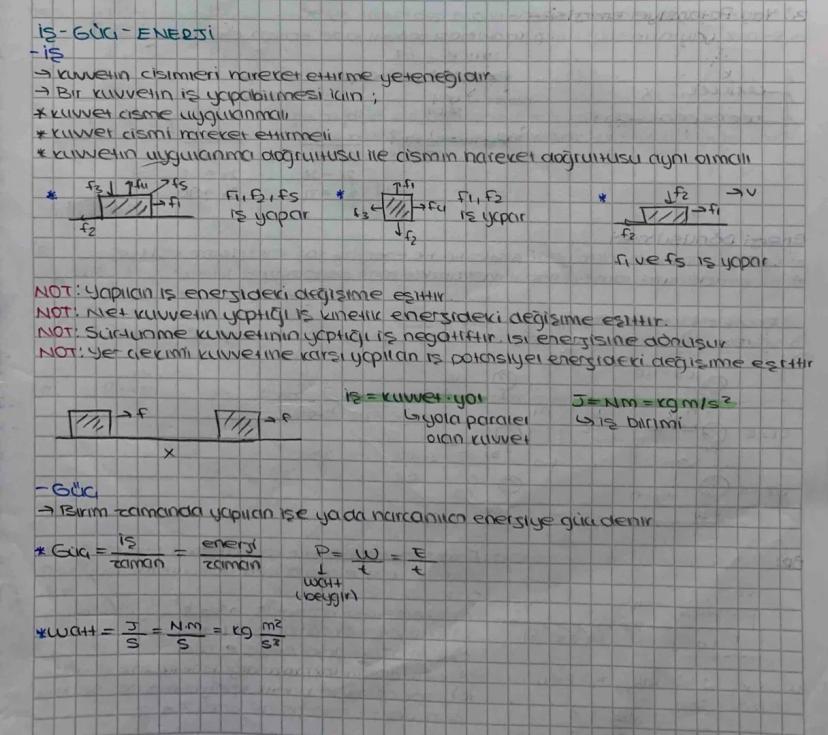 İŞ-GÜÇ-ENERJİ
-İŞ
→ kuvvetin cisimleri hareket ettirme yeteneğidir
→ Bir kuvvetin iş yapabilmesi için ;
* kuvvet cisme uygulanmalı
* kuvvet cismi hareket ettirmeli
* kuvvetin uygulanma doğrultusu ile cismin hareket doğrultusu aynı olmalı
* f3 f4 f5 f1 f2
f1, f2, f5
iş yapar
* f1 f3 f4 f2
f1, f2
iş yapar
* f2 → v f1 f2
f1 ve fs iş yapar
NOT: Yapılan iş enerjideki değişime eşittir.
NOT: Net kuvvetin yaptığı iş kinetik enerjideki değişime eşittir.
NOT: Sürtünme kuvvetinin yaptığı iş negatiftir. ısı enerjisine dönüşür
NOT: Yer çekimi kuvvetine karşı yapılan iş potansiyel enerjideki değişime eşittir
→ f → f
x
iş = kuvvet.yol
↳ yola paralel
olan kuvvet
J = Nm = kg m/s²
↳ iş birimi
- GÜÇ
→ Birim zamanda yapılan işe ya da harcanılan enerjiye güç denir.
* Güç = iş / zaman = enerji / zaman
P = W / t = E / t
↓
watt
(beygir)
* watt = J / s = N.m / s = kg m² / s²